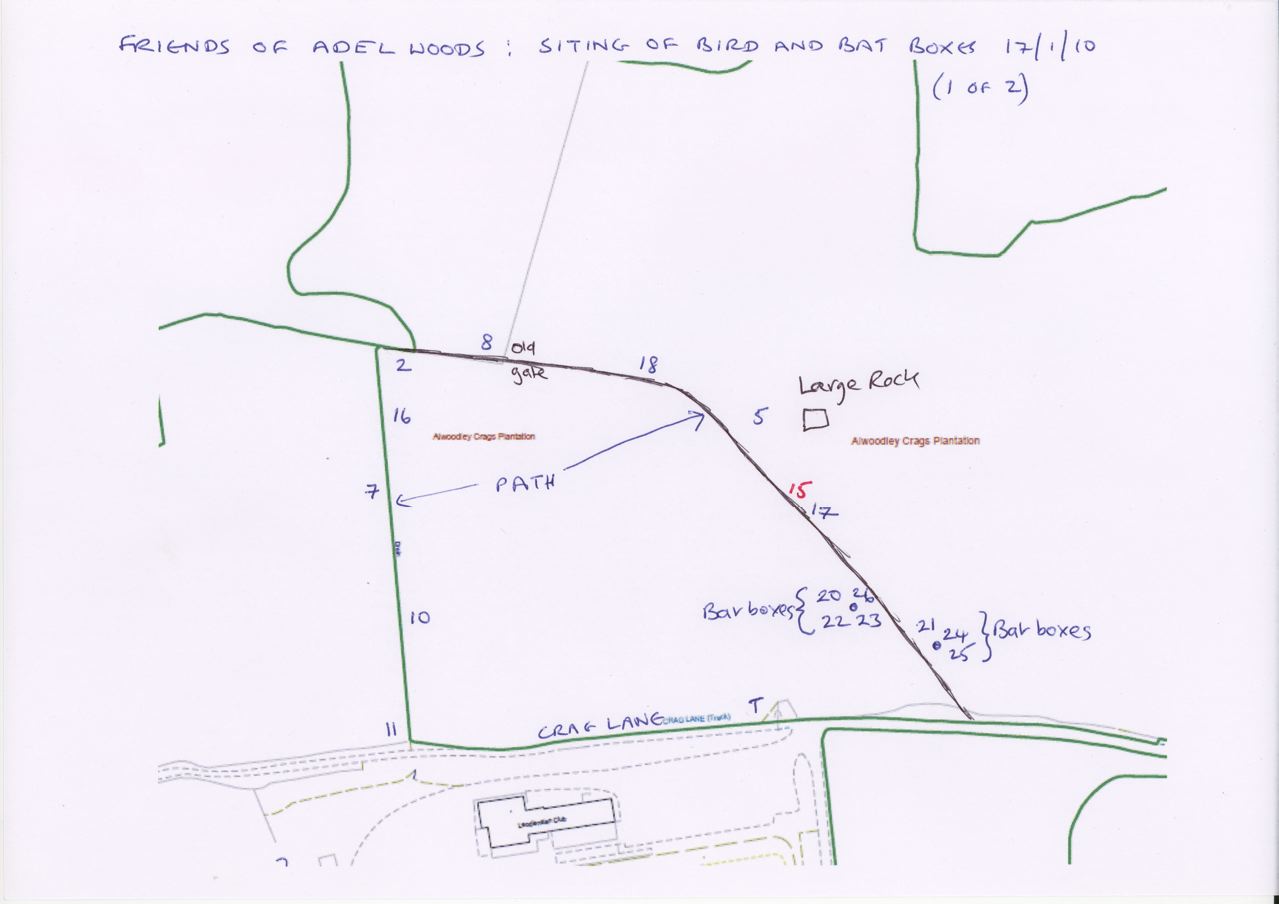 FRIENDS OF ADEL WOODS : SITING OF BIRD AND BAT BOXES 17/1/10
(1 OF 2)
8 Old
gate
2
18
Large Rock
5
16
Alwoodley Crags Plantation
Alwoodley Crags Plantation
7
PATH
15
17
10
Bat boxes { 20 26
22 23
21 24
25 } Bat boxes
11
CRAG LANE
CRAG LANE (Track)
T